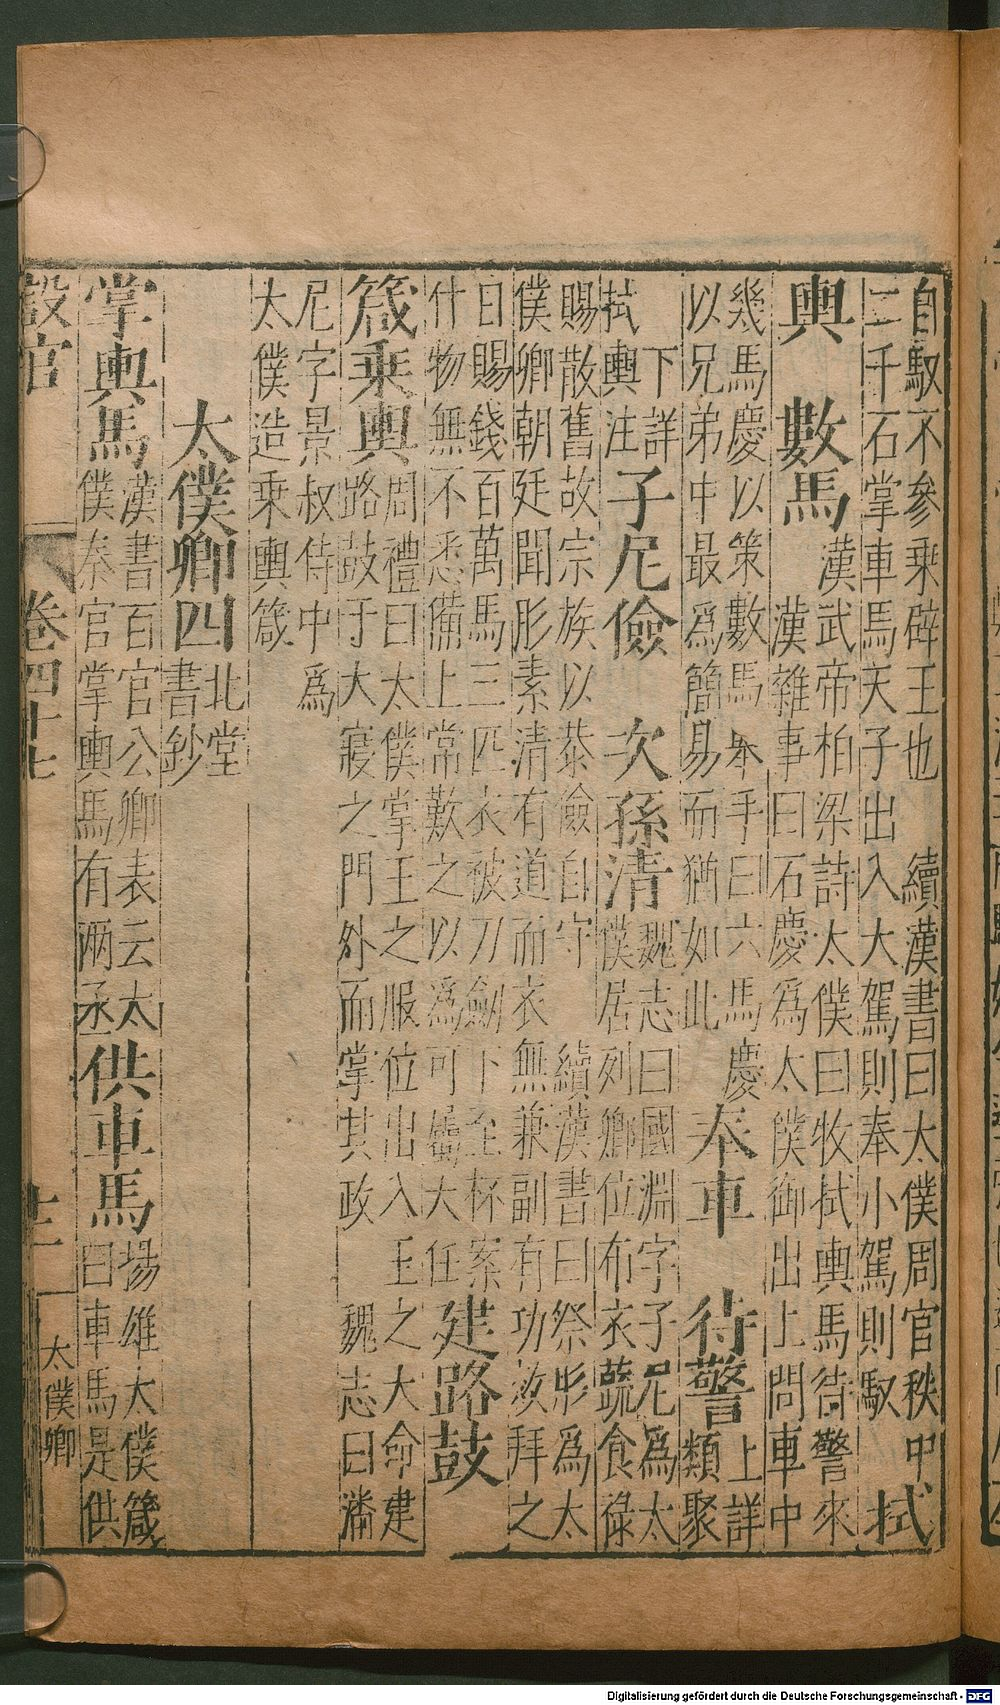 自馭不參乗辟王也　續漢書曰太僕周官秩中
二千石掌車馬天子出入大駕則奉小駕則馭
拭
輿　數馬
漢武帝柏梁詩太僕曰牧拭輿馬待警來
漢雜事曰石慶爲太僕御出上問車中
幾馬慶以策數馬畢手曰六馬慶
以兄弟中最爲簡易而猶如此
奉車　待警
上詳
類聚
下詳
拭輿注
子尼儉　次孫清
魏志曰國淵字子尼爲太
僕居列卿位布衣蔬食祿
賜散舊故宗族以恭儉自守　續漢書曰祭肜爲太
僕卿朝廷聞肜素清有道而衣無兼副有功汝拜之
日賜錢百萬馬三匹衣被刀劒下至杯案
什物無不悉備上常歎之以爲可屬大任
建路鼓
箴乗輿
周禮曰太僕掌王之服位出入王之大命建
路鼓于大寢之門外而掌其政　魏志曰潘
尼字景叔侍中爲
太僕造乗輿箴
太僕卿四
北堂
書鈔
掌輿馬
漢書百官公卿表云太
僕秦官掌輿馬有兩丞
供車馬
揚雄太僕箴
曰車馬是供
設官　卷四十七　十二　太僕卿
Digitalisierung gefördert durch die Deutsche Forschungsgemeinschaft - DFG